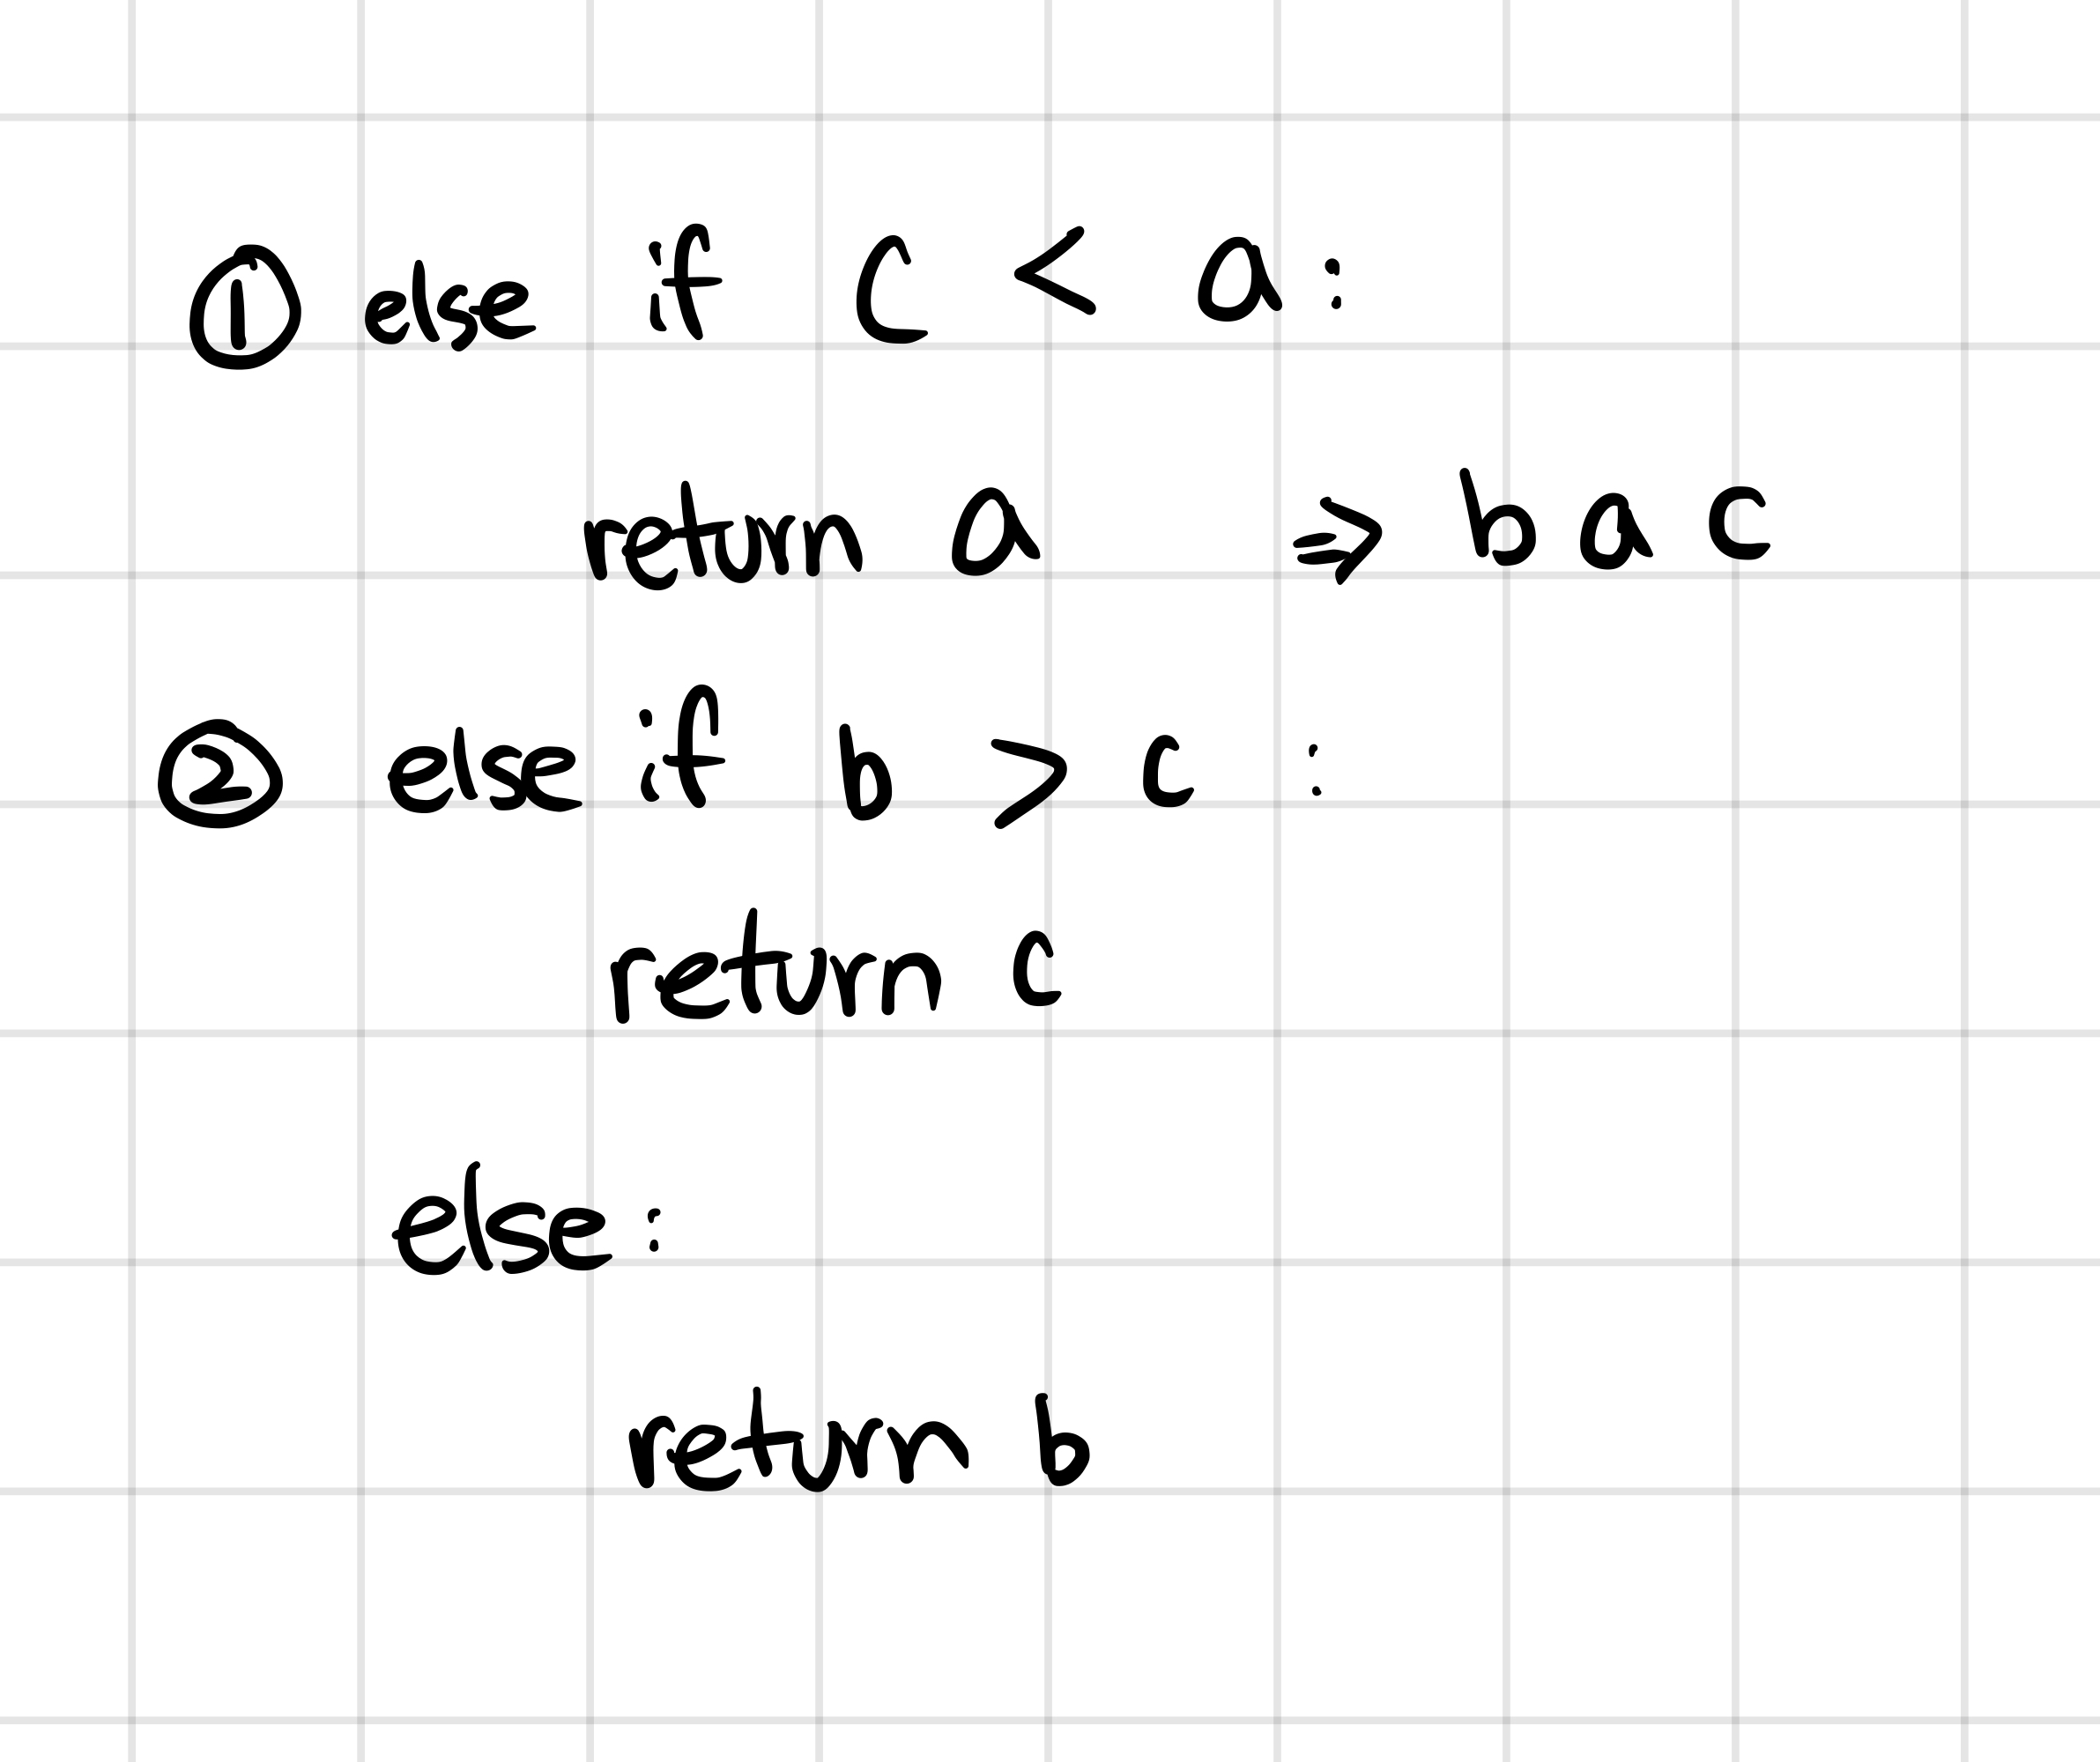 ① else if c < a :
return a ⇒ b a c
② else if b > c :
return c
else :
return b